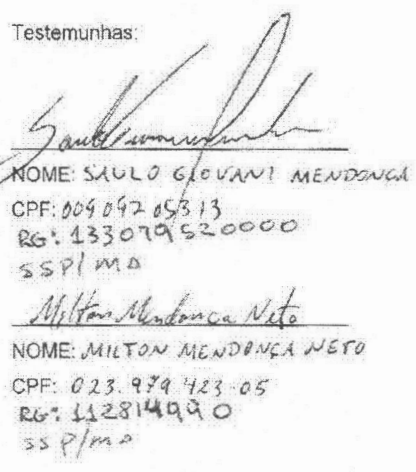 Testemunhas:
NOME: SAULO GIOVANI MENDONÇA
CPF: 009 092 053 13
RG: 133079520000
SSP/MA
Milton Mendonça Neto
NOME: MILTON MENDONÇA NETO
CPF: 023.979 423-05
RG: 112814990
SSP/MA